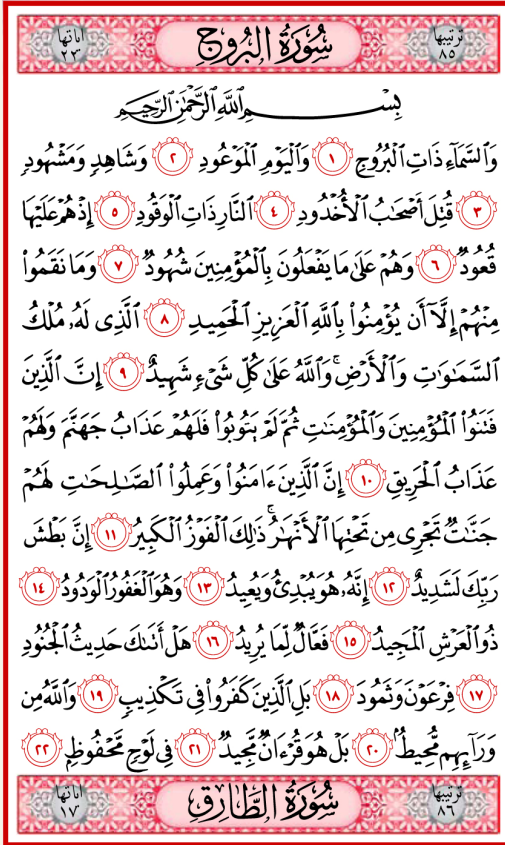 ترتيبها سُورَةُ البُرُوجِ آياتها
٨٥ ٢٢
بِسْمِ اللَّهِ الرَّحْمَٰنِ الرَّحِيمِ
وَالسَّمَآءِ ذَاتِ الْبُرُوجِ ١ وَالْيَوْمِ الْمَوْعُودِ ٢ وَشَاهِدٍ وَمَشْهُودٍ
٣ قُتِلَ أَصْحَٰبُ الْأُخْدُودِ ٤ النَّارِ ذَاتِ الْوَقُودِ ٥ إِذْ هُمْ عَلَيْهَا
قُعُودٌ ٦ وَهُمْ عَلَىٰ مَا يَفْعَلُونَ بِالْمُؤْمِنِينَ شُهُودٌ ٧ وَمَا نَقَمُوا
مِنْهُمْ إِلَّآ أَن يُؤْمِنُوا بِاللَّهِ الْعَزِيزِ الْحَمِيدِ ٨ الَّذِى لَهُۥ مُلْكُ
السَّمَٰوَٰتِ وَالْأَرْضِ ۚ وَاللَّهُ عَلَىٰ كُلِّ شَىْءٍ شَهِيدٌ ٩ إِنَّ الَّذِينَ
فَتَنُوا الْمُؤْمِنِينَ وَالْمُؤْمِنَٰتِ ثُمَّ لَمْ يَتُوبُوا فَلَهُمْ عَذَابُ جَهَنَّمَ وَلَهُمْ
عَذَابُ الْحَرِيقِ ١٠ إِنَّ الَّذِينَ ءَامَنُوا وَعَمِلُوا الصَّٰلِحَٰتِ لَهُمْ
جَنَّٰتٌ تَجْرِى مِن تَحْتِهَا الْأَنْهَٰرُ ۚ ذَٰلِكَ الْفَوْزُ الْكَبِيرُ ١١ إِنَّ بَطْشَ
رَبِّكَ لَشَدِيدٌ ١٢ إِنَّهُۥ هُوَ يُبْدِئُ وَيُعِيدُ ١٣ وَهُوَ الْغَفُورُ الْوَدُودُ ١٤
ذُو الْعَرْشِ الْمَجِيدُ ١٥ فَعَّالٌ لِّمَا يُرِيدُ ١٦ هَلْ أَتَىٰكَ حَدِيثُ الْجُنُودِ
١٧ فِرْعَوْنَ وَثَمُودَ ١٨ بَلِ الَّذِينَ كَفَرُوا فِى تَكْذِيبٍ ١٩ وَاللَّهُ مِن
وَرَآئِهِم مُّحِيطٌۢ ٢٠ بَلْ هُوَ قُرْءَانٌ مَّجِيدٌ ٢١ فِى لَوْحٍ مَّحْفُوظٍۭ ٢٢
ترتيبها سُورَةُ الطَّارِقِ آياتها
٨٦ ١٧